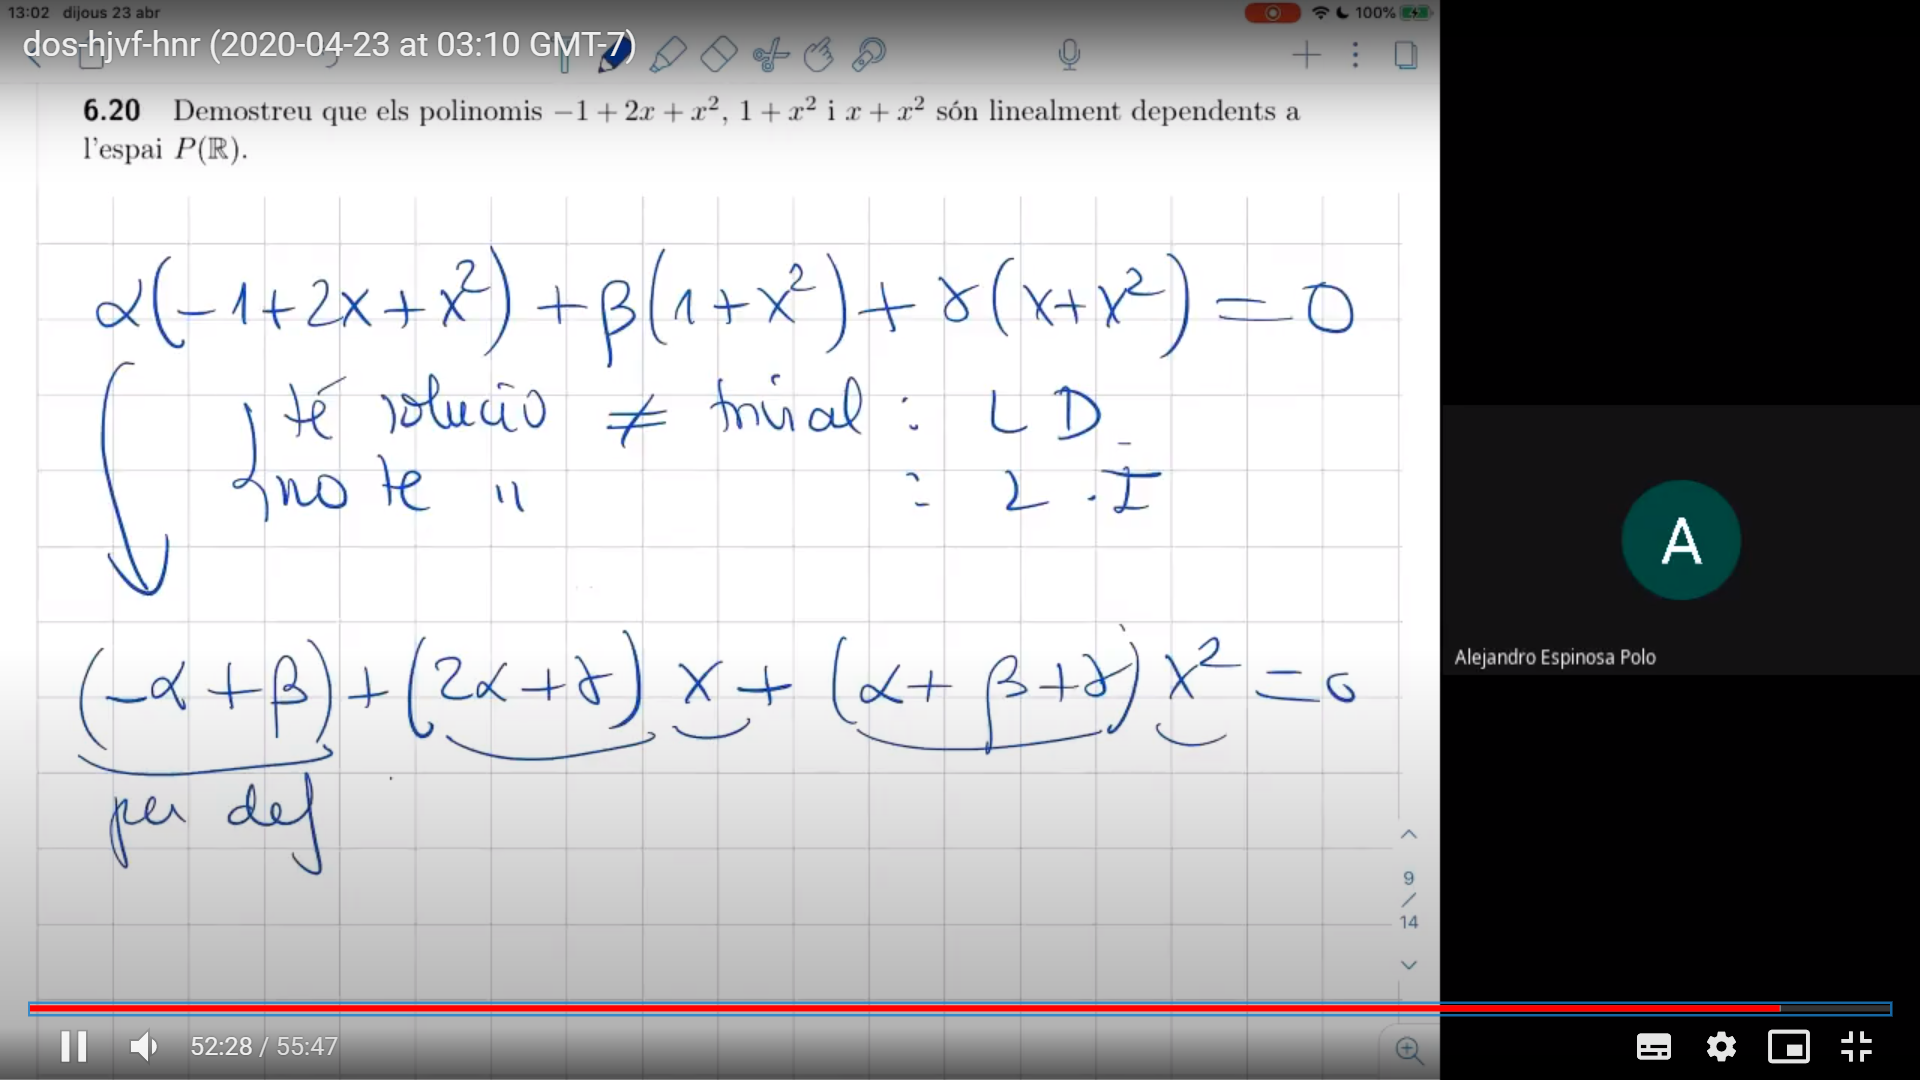 13:02 dijous 23 abr
100%
dos-hjvf-hnr (2020-04-23 at 03:10 GMT-7)
6.20 Demostreu que els polinomis −1 + 2x + x², 1 + x² i x + x² són linealment dependents a
l'espai P(ℝ).
α(-1+2x+x²) + β(1+x²) + γ(x+x²) = 0
té solució ≠ trivial : LD
no te " : L.I
(-α+β) + (2α+γ) x + (α+β+γ) x² = 0
per def
9
/
14
A
Alejandro Espinosa Polo
52:28 / 55:47